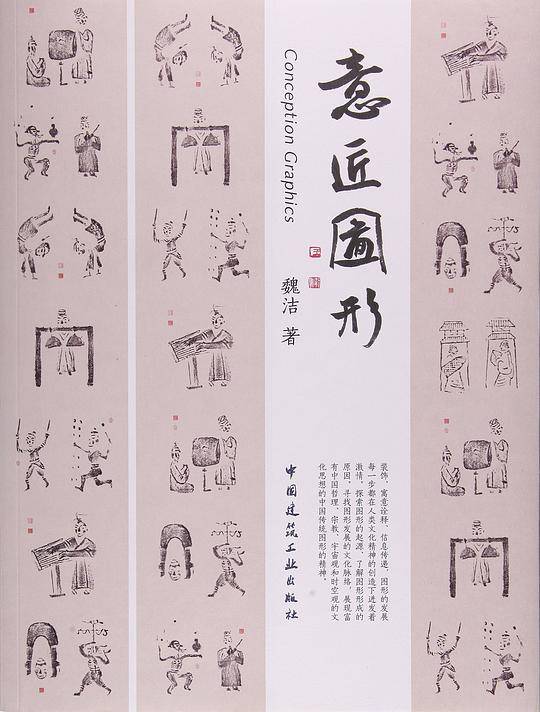 意匠圖形
Conception Graphics
魏洁 著
装饰，寓意诠释，信息传递，图形的发展
每一步都在人类文化精神的创造下迸发着
激情。探索图形的起源，了解图形形成的
原因，寻找图形发展的文化脉络，展现富
有中国哲理、宗教、宇宙观和时空观的文
化思想的中国传统图形的精神。
中国建筑工业出版社